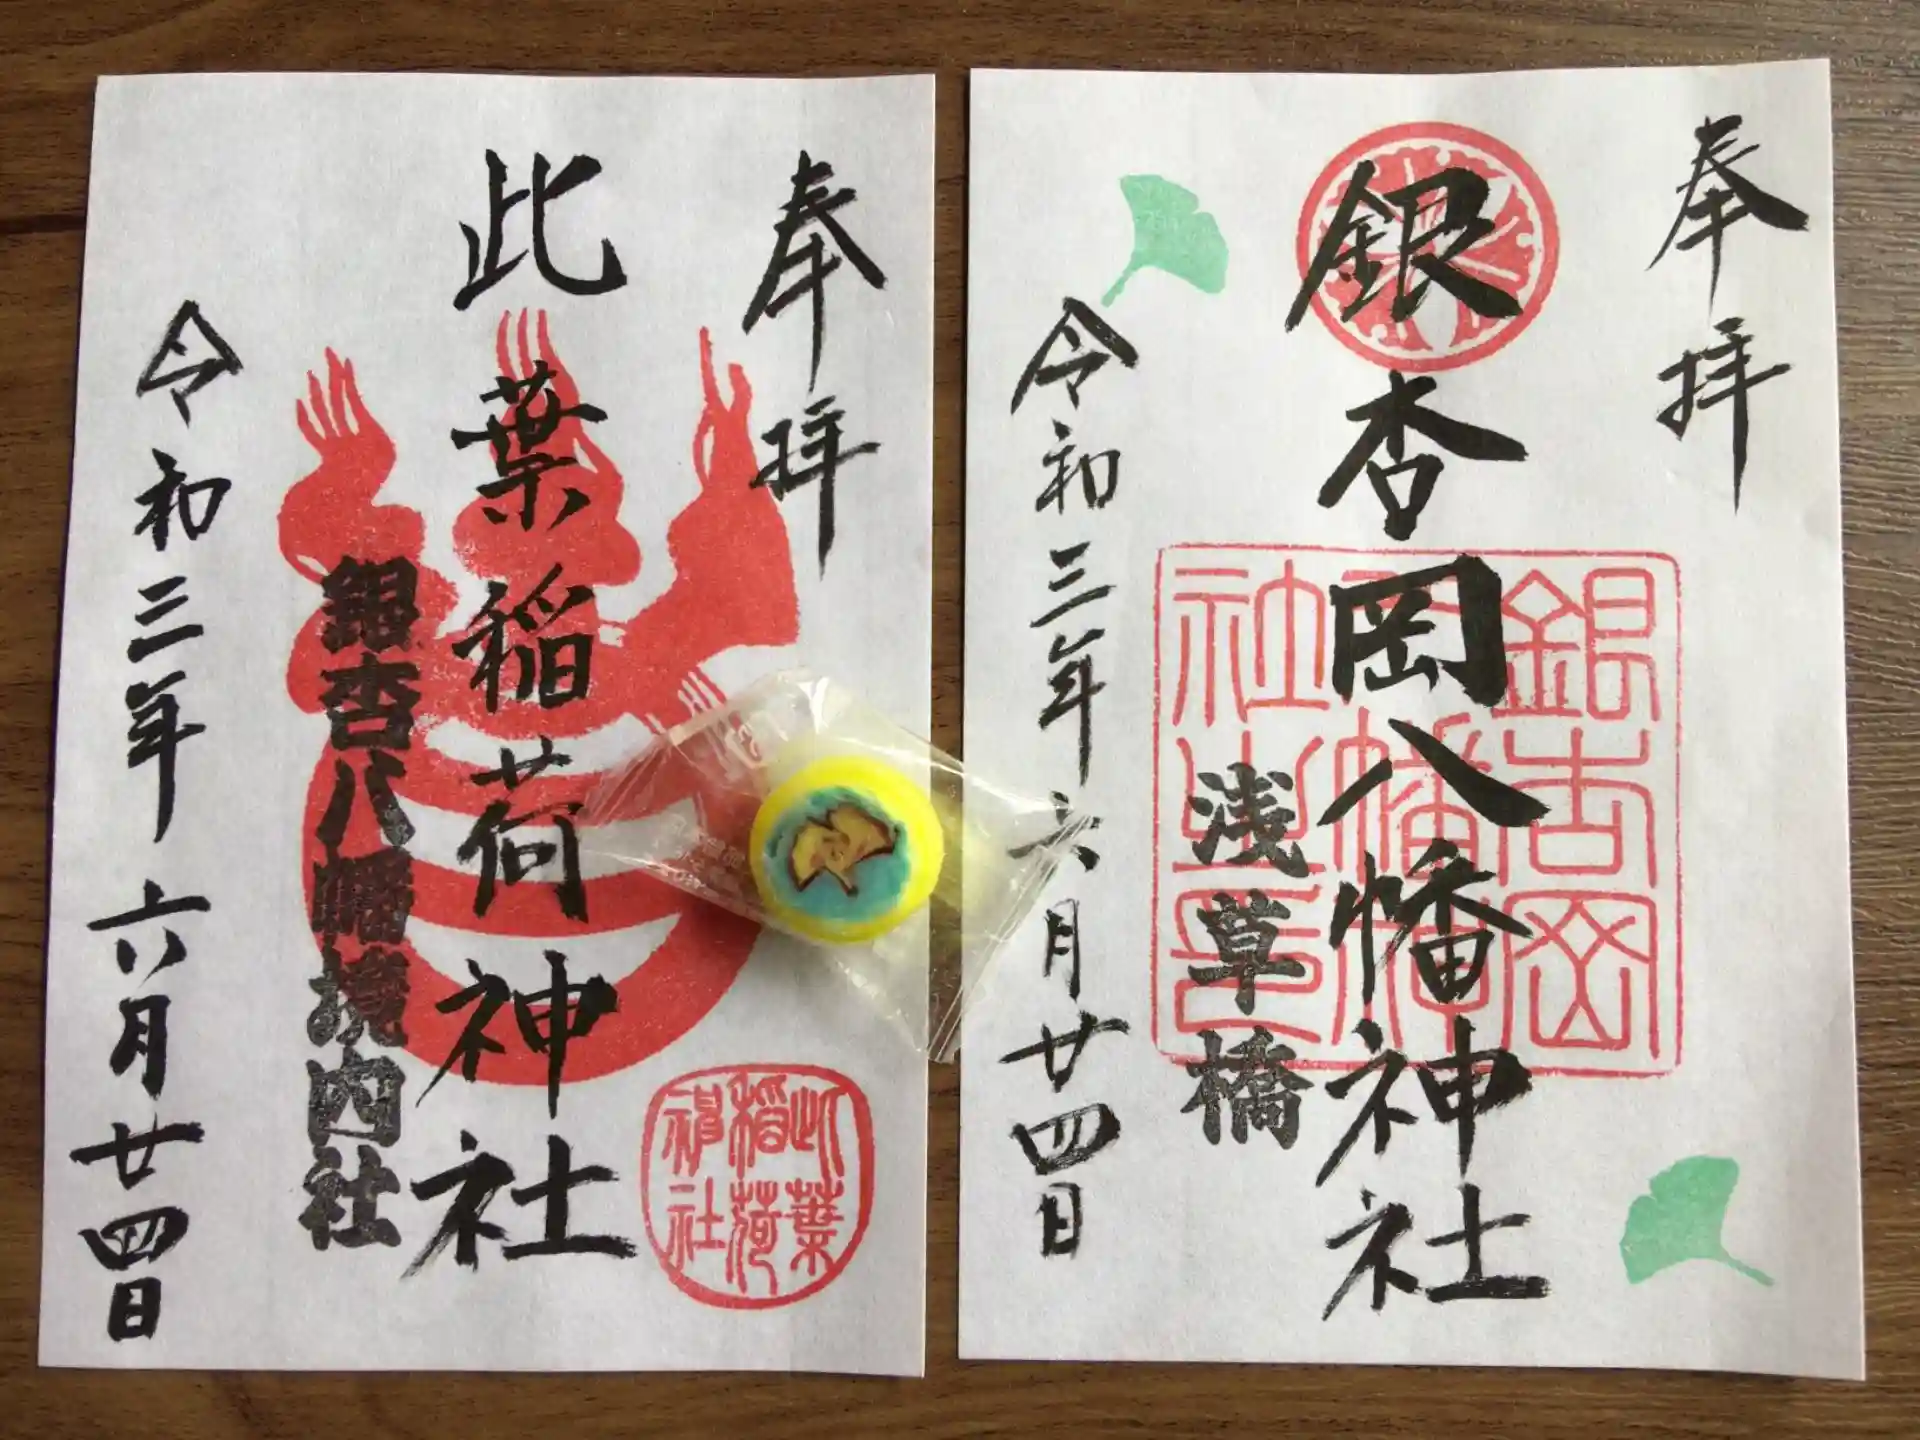 奉拝
銀杏岡八幡神社
浅草橋
令和三年六月廿四日
銀杏岡
八幡神
社之印
奉拝
此葉稲荷神社
銀杏八幡境内社
令和三年六月廿四日
此葉
稲荷
神社